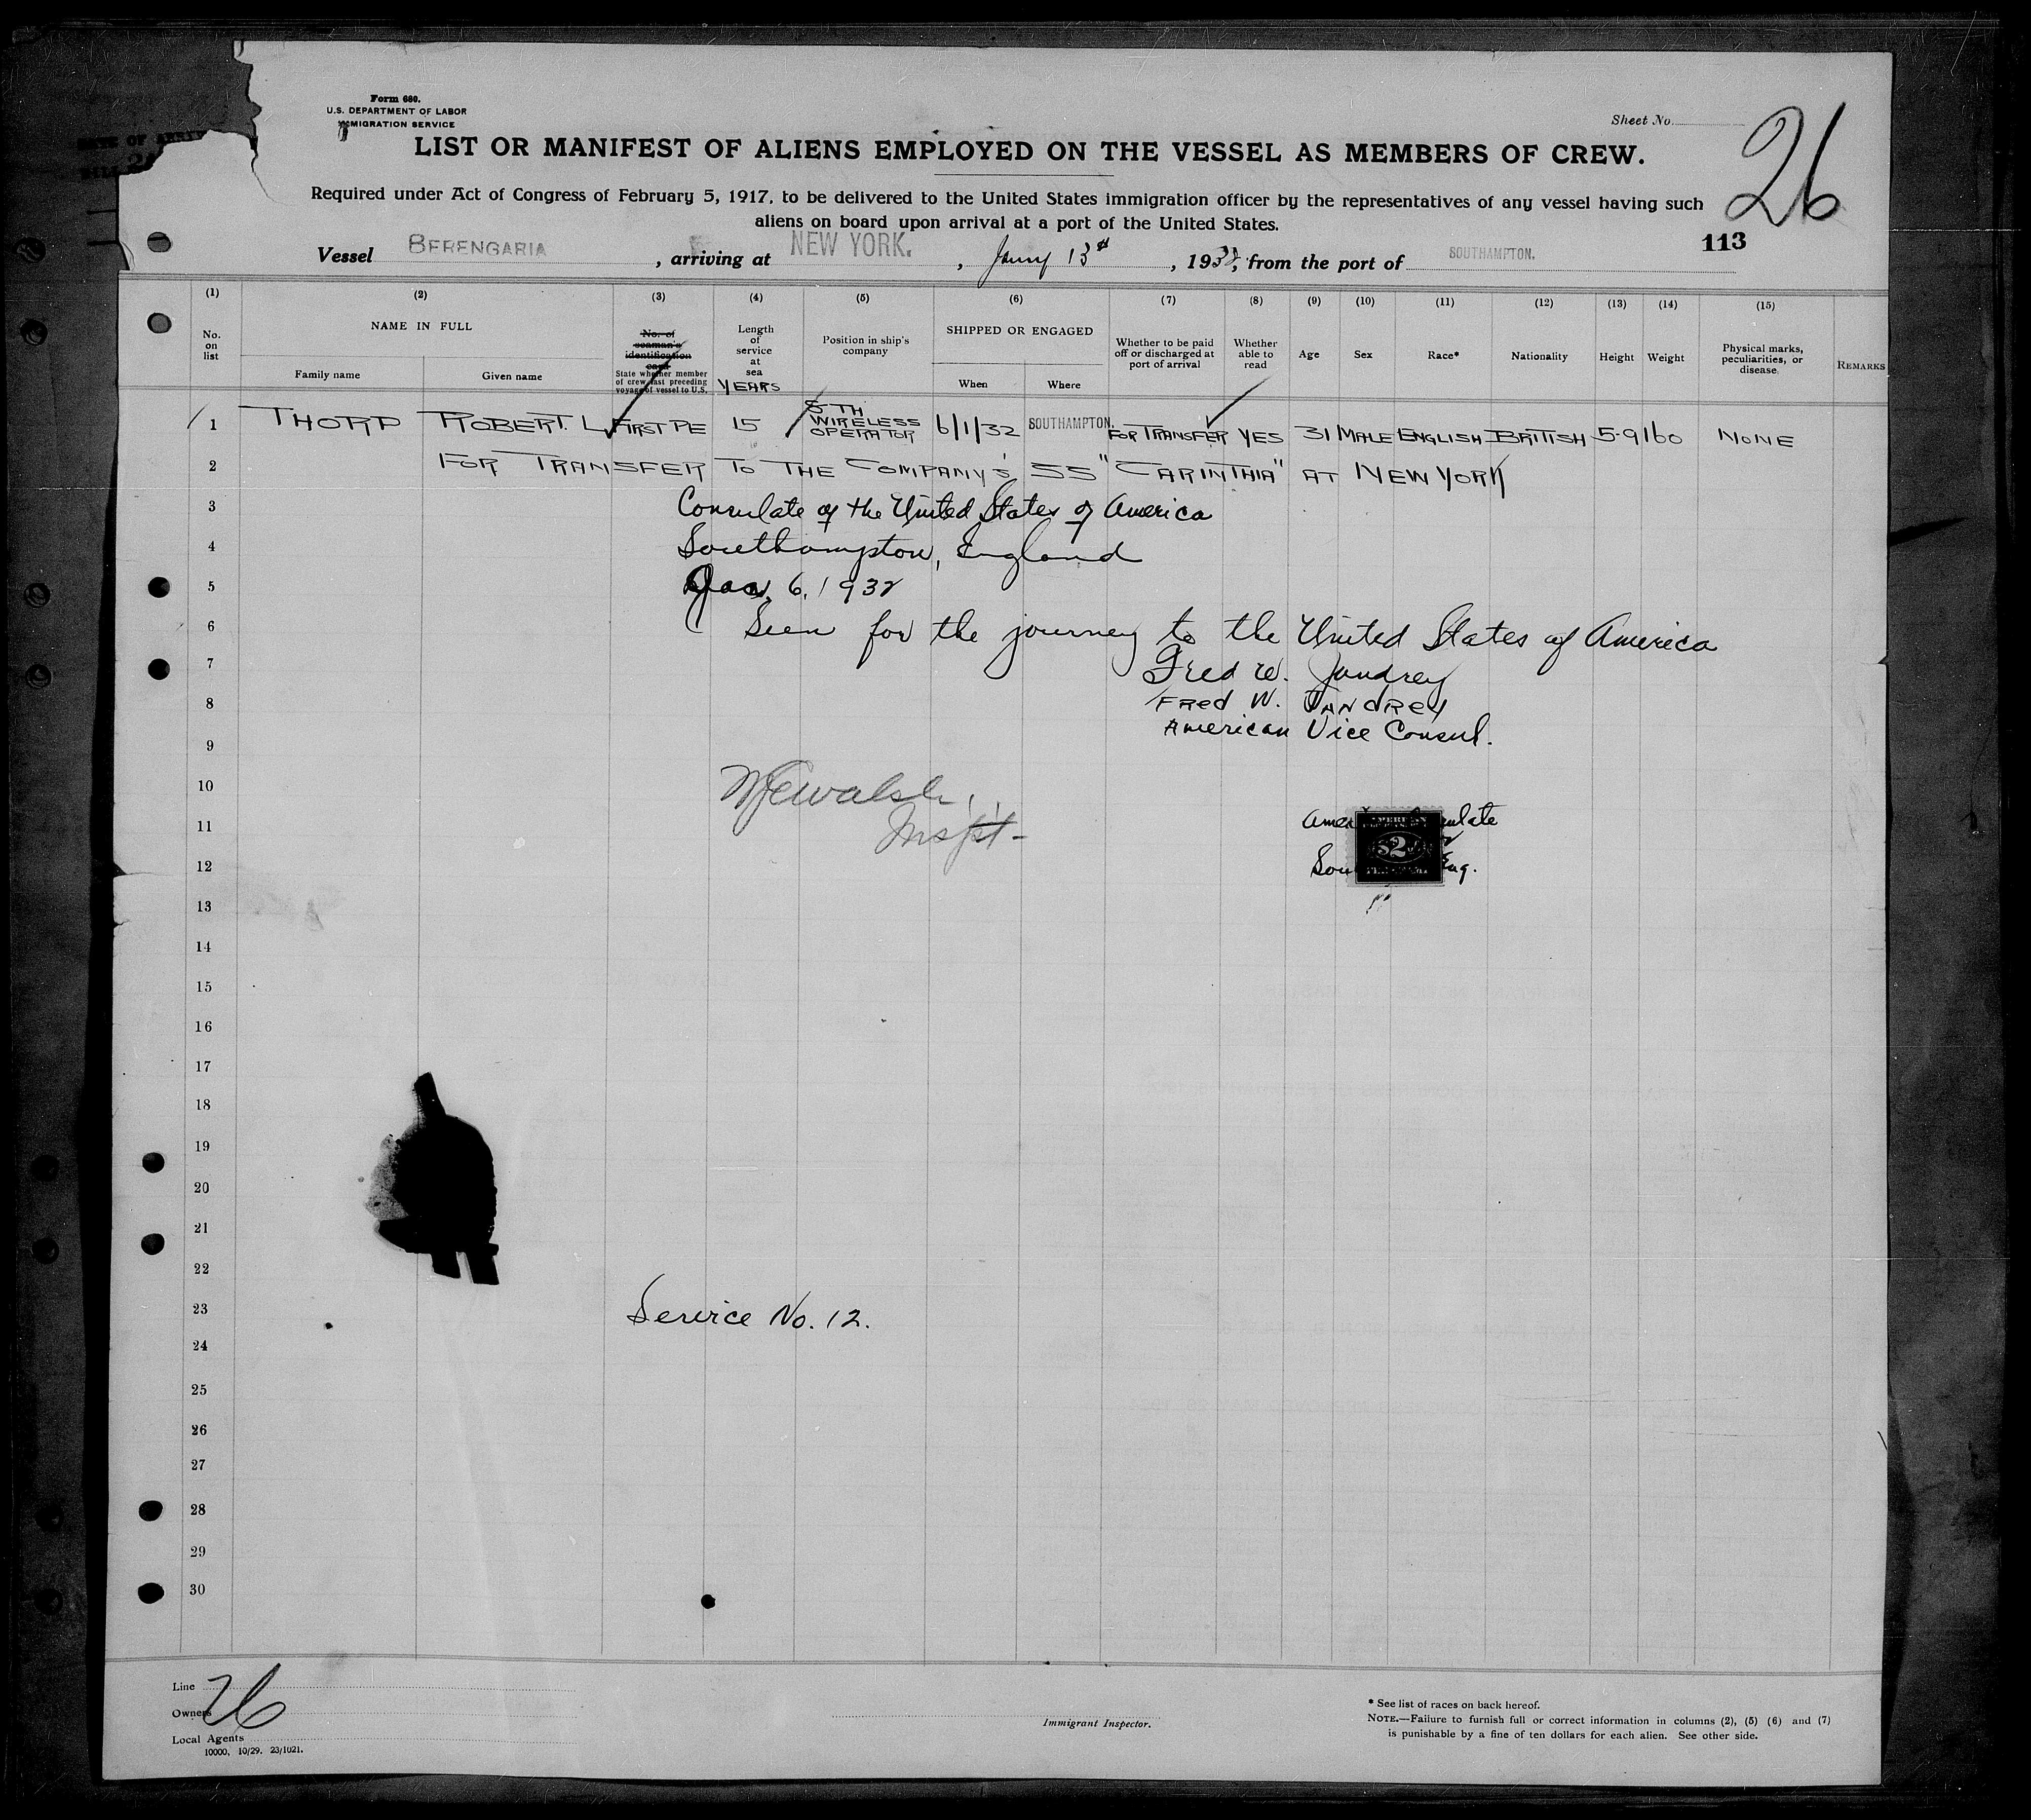 Form 680.
U.S. DEPARTMENT OF LABOR
IMMIGRATION SERVICE
Sheet No.
26
LIST OR MANIFEST OF ALIENS EMPLOYED ON THE VESSEL AS MEMBERS OF CREW.
Required under Act of Congress of February 5, 1917, to be delivered to the United States immigration officer by the representatives of any vessel having such
aliens on board upon arrival at a port of the United States.
113
Vessel BERENGARIA, arriving at NEW YORK., Jany 13th, 1932, from the port of SOUTHAMPTON.
(1) (2) (3) (4) (5) (6) (7) (8) (9) (10) (11) (12) (13) (14) (15)
No. on list
NAME IN FULL
Family name Given name
No. of seaman's identification card
State whether member of crew last preceding voyage of vessel to U.S.
Length of service at sea
YEARS
Position in ship's company
SHIPPED OR ENGAGED
When Where
Whether to be paid off or discharged at port of arrival
Whether able to read
Age
Sex
Race*
Nationality
Height
Weight
Physical marks, peculiarities, or disease.
REMARKS
1 THORP ROBERT. L. FIRST PE 15 5TH WIRELESS OPERATOR 6/1/32 SOUTHAMPTON. FOR TRANSFER YES 31 MALE ENGLISH BRITISH 5-9 160 NONE
2 FOR TRANSFER TO THE COMPANY'S SS "CARINTHIA" AT NEW YORK
3 Consulate of the United States of America
4 Southampton, England
5 Jan. 6, 1932
6 Seen for the journey to the United States of America
7 Fred W. Jandrey
8 FRed W. JANdRey
American Vice Consul.
9
10
11
12
13
14
15
16
17
18
19
20
21
22
23 Service No. 12.
24
25
26
27
28
29
30
Line
26
Owners
Local Agents
10000, 10/29. 23/1021.
Immigrant Inspector.
* See list of races on back hereof.
NOTE.—Failure to furnish full or correct information in columns (2), (5) (6) and (7)
is punishable by a fine of ten dollars for each alien. See other side.